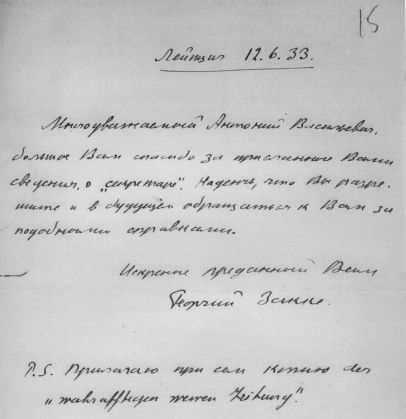 15
Лейпциг 12.6.33.
Многоуважаемый Антоний Васильевич.
большое Вам спасибо за присланные Вами
сведения о „секретаре". Надеюсь, что Вы разре-
шите и в будущем обращаться к Вам за
подобными справками.
Искренне преданный Вам
Георгий Закке.
P.S. Прилагаю при сем копию der
„wahrhaftigen neuen Zeitung".